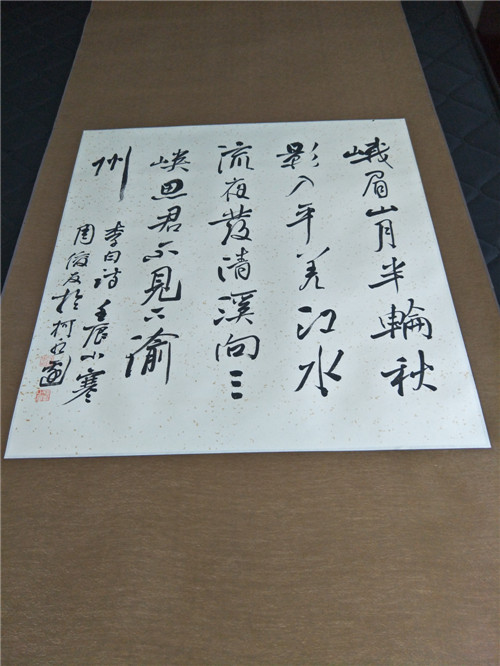 峨眉山月半輪秋
影入平羌江水
流夜發清溪向三
峡思君不見下渝
州
李白诗 壬辰小寒
周俊友於柯